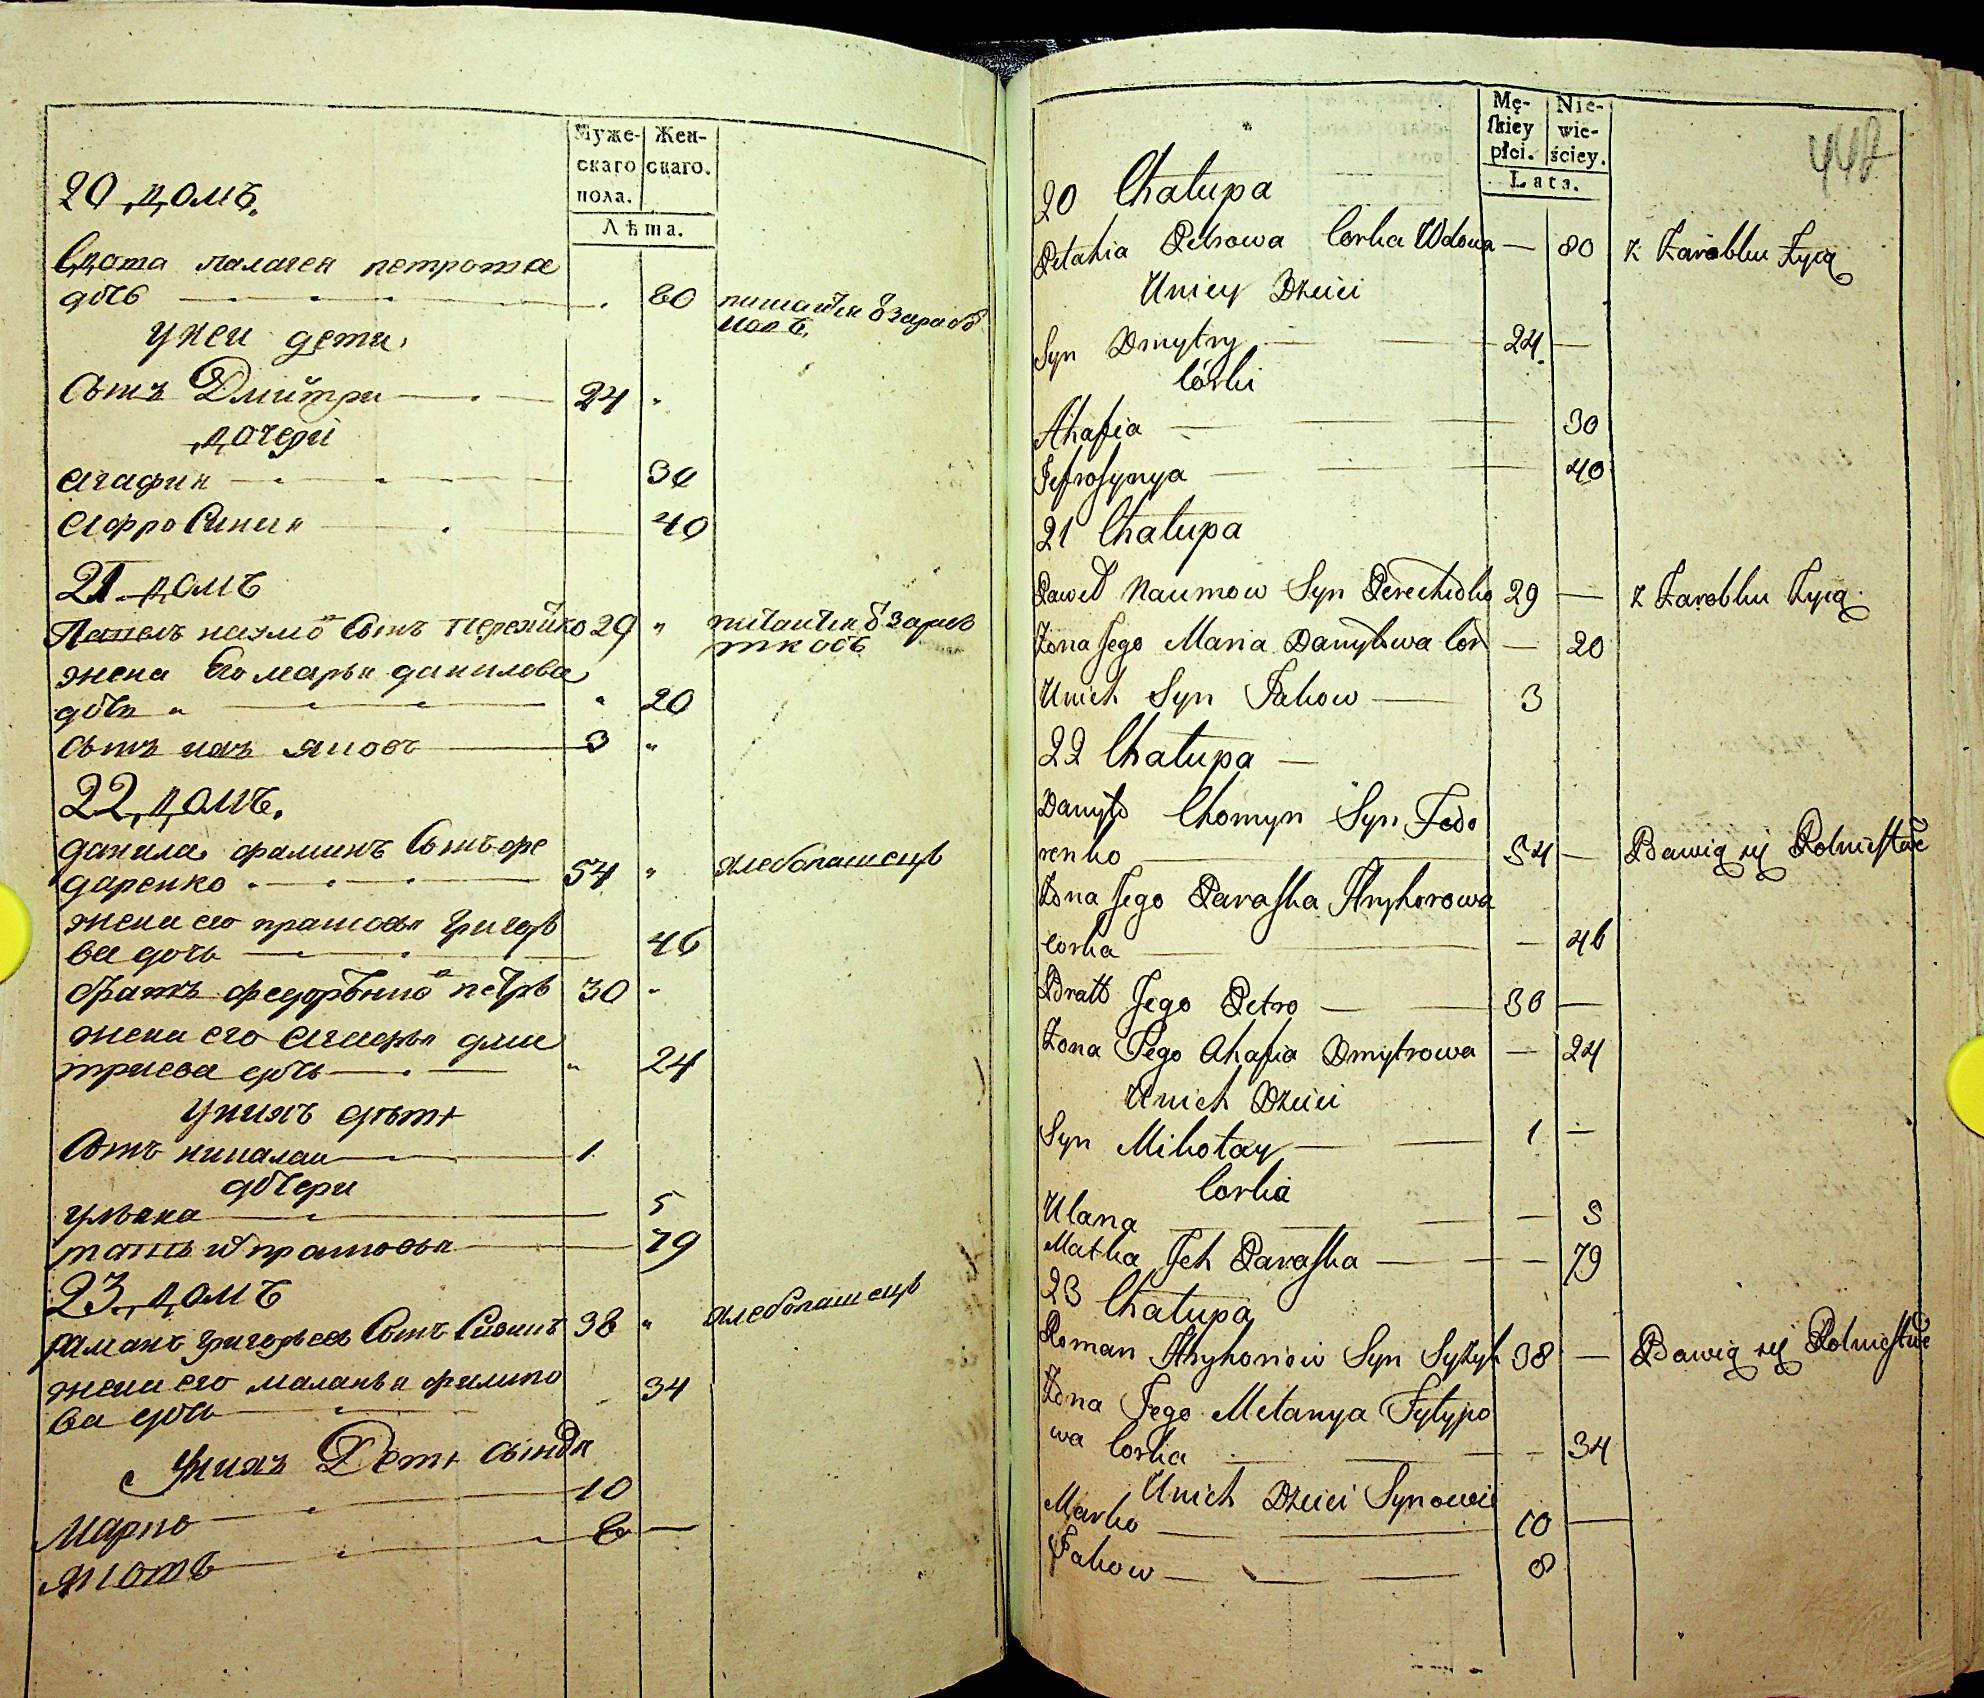 Муже-
скаго
пола.
Жен-
скаго.
Лѣта.
20 домъ.
Вдова палагея петрова
дочь 80 питаится Взарабо
тковъ
унеи дети
Сынъ Дмитри 24
дочери
агафия 30
афросиния 40
21 домъ
Павелъ наумо Сынъ перехико 29 питаится Взараб
тковъ
жена Его марья данилова
дочь 20
сынъ ихъ яковъ 3
22 домъ.
данила фаминъ Сынъ фе
даренко 54 хлебопашецъ
жена его прасковья григор
ва дочь 46
братъ федоренко петръ 30
жена его агафья дми
триева дочь 24
унихъ дѣти
Сынъ николаи 1
дочери
ульяна 5
мать их прасковья 79
23 домъ
раманъ григорьевъ Сынъ 38 хлебопашецъ
жена его маланья филипо
ва дочь 34
Унихъ Дети сынвя
Марко 10
Яковъ 8
Mę-
ſkiey
płci.
Nie-
wie-
ściey.
Lata.
447
20 Chałupa
Pelahia Petrowa Corka Wdowa — 80 z Zarobku Żyią
Uniey Dzieci
Syn Dmytry 24 —
Córki
Ahafia 30
Jefroſynya 40
21 Chałupa
Paweł Naumow Syn Perechidko 29 — z Zarobku Żyią
Żona Jego Maria Danyłowa Cor — 20
Unich Syn Jakow 3
22 Chałupa —
Danyło Chomyn Syn Fedo
renko 54 — Bawią się Rolnictwe
Żona Jego Paraſka Hryhorowa
Corka — 46
Bratt Jego Petro 30 —
Żona Jego Ahafia Dmytrowa — 24
Unich Dzieci
Syn Mikołay 1 —
Corka
Ulana — 5
Matka Jch Paraſka — 79
23 Chałupa
Roman Hryhoriow Syn 38 — Bawią się Rolnictwe
Żona Jego Melanya Fyłypo
wa Corka — 34
Unich Dzieci Synowie
Marko 10 —
Jakow 8